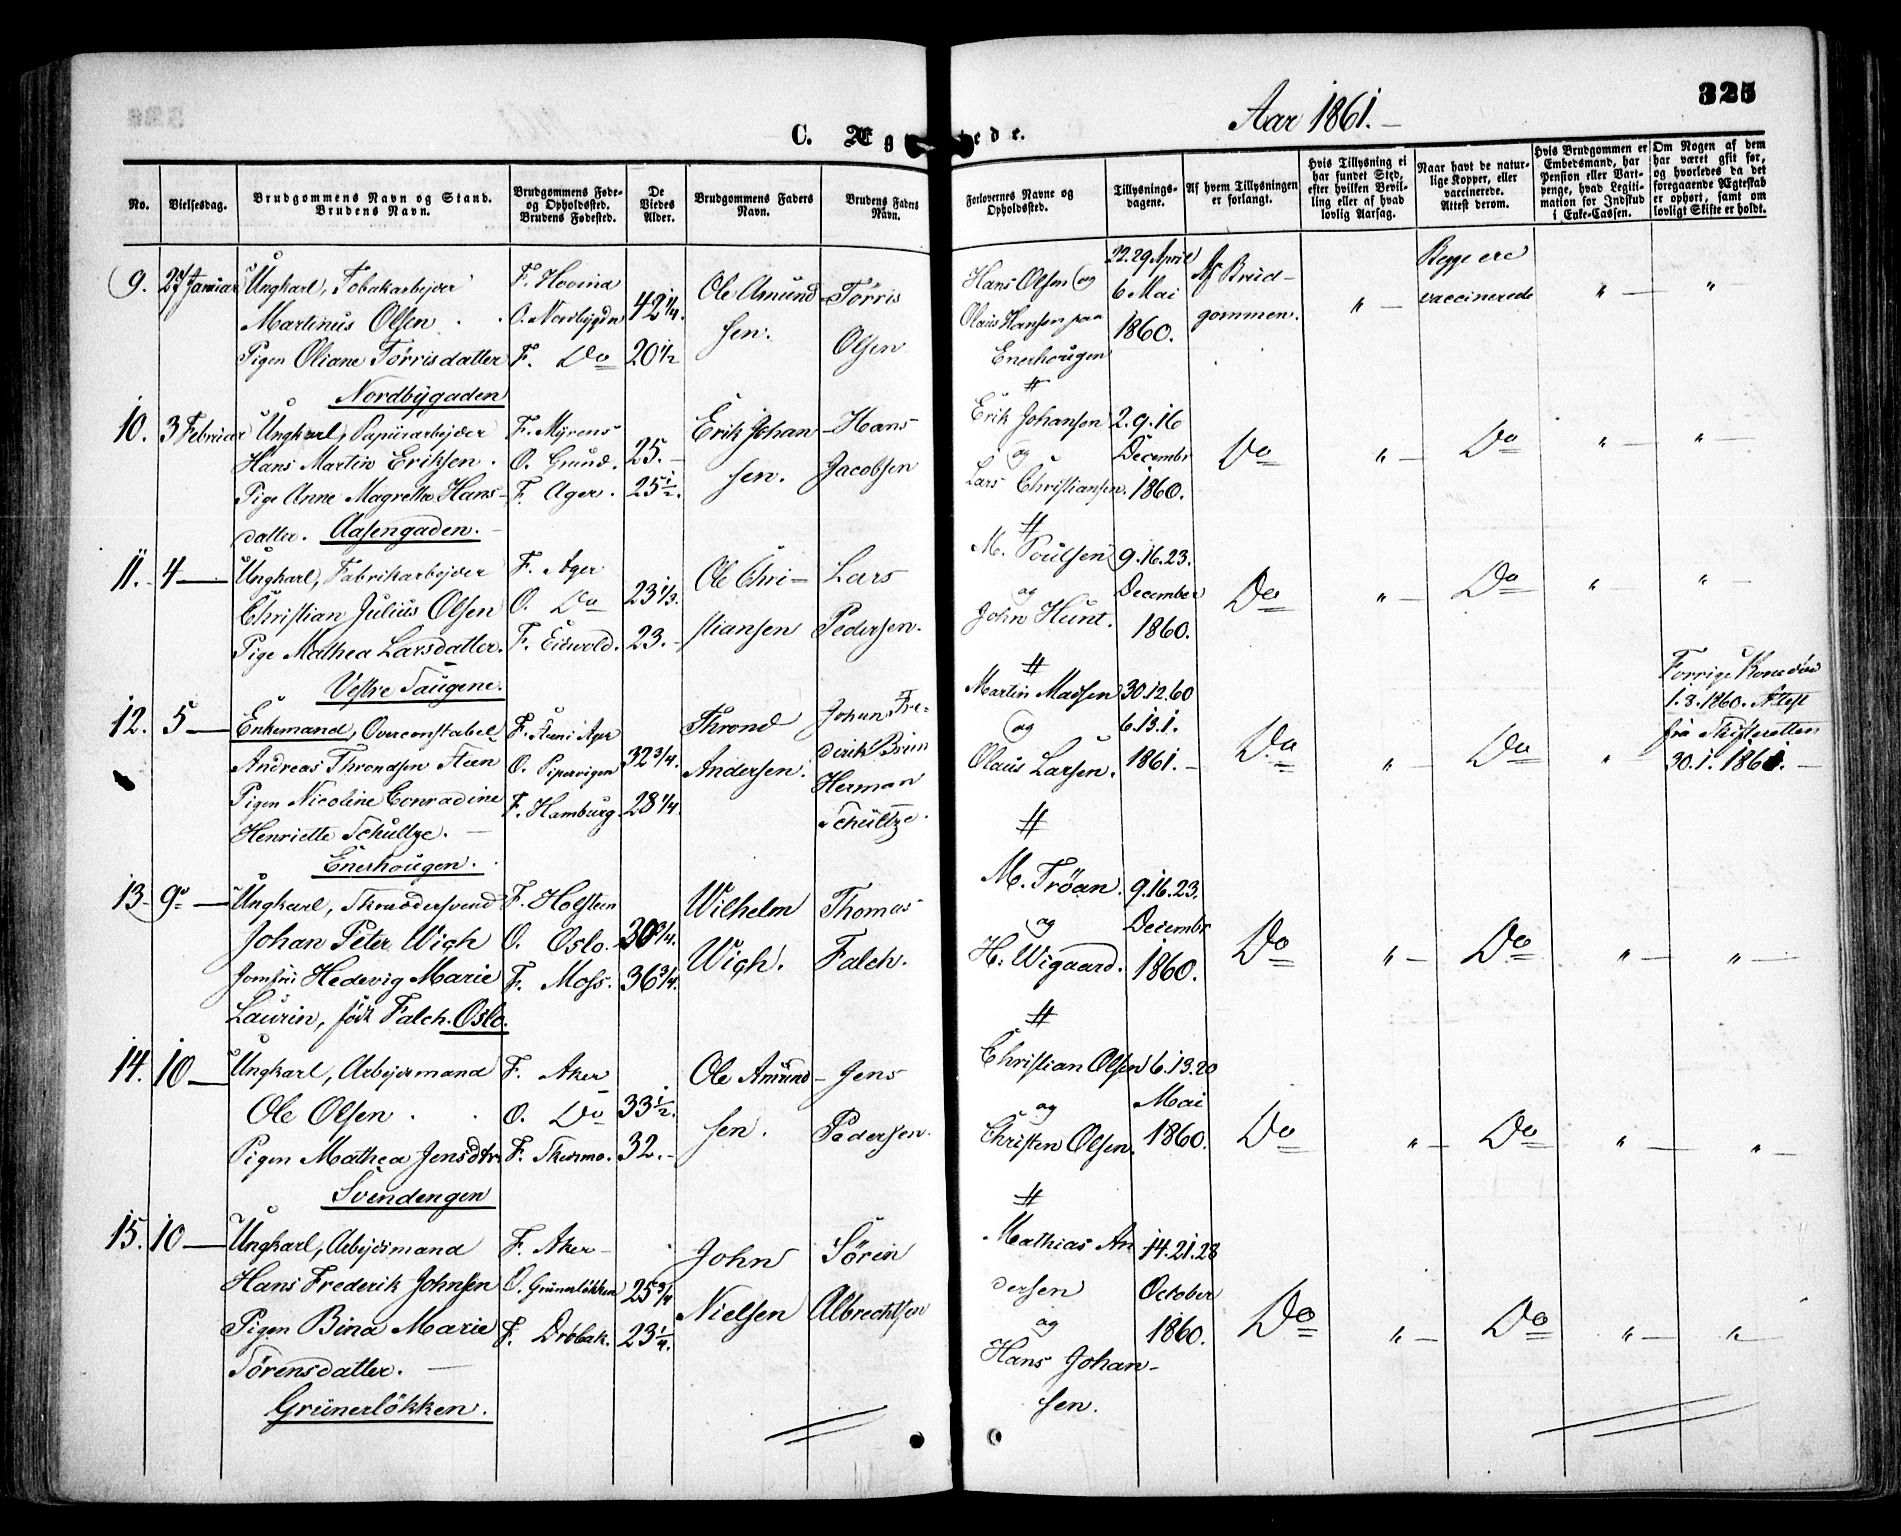 325
Aar 1861.
C. Æg tede.
No.
Vielsesdag.
Brudgommens Navn og Stand.
Brudens Navn.
Brudgommens Føde- og Opholdssted.
Brudens Fødested.
De Viedes Alder.
Brudgommens Faders Navn.
Brudens Faders Navn.
Forlovernes Navne og Opholdssted.
Tillysnings-dagene.
Af hvem Tillysningen er forlangt.
Hvis Tillysning ei har fundet Sted, efter hvilken Bevilling eller af hvad lovlig Aarsag.
Naar havt de naturlige Kopper, eller vaccinerede. Attest derom.
Hvis Brudgommen er Embedsmand, har Pension eller Vartpenge, hvad Legitimation for Indskud i Enke-Cassen.
Om Nogen af dem har været gift før, og hvorledes da det foregaaende Ægteskab er ophørt, samt om lovligt Skifte er holdt.
9. 27 Januar Ungkarl, Tobakarbejder F. Hovind Ole Amund- Tørris Hans Olsen og 22.29 April Af Brud- Begge ere
Martinus Olsen O. Nordbygdn 42 1/4. sen. Olaus Hansen paa 6 Mai gommen. " vaccinerede " "
Pigen Oliane Tørrisdatter F. Do 20 1/2 Olsen Enerhougen 1860.
Nordbygaden #
10. 3 Februar Ungkarl, Papiirarbejder F. Myrens Erik Johan- Hans Erik Johansen 2.9.16
Hans Martin Eriksen. O. Grund. 25. sen. Jacobsen og Decembr Do " Do " "
Pige Anne Magrethe Hans- F. Ager. 25 1/2. Lars Christiansen. 1860.
datter. Aasengaden. #
11. 4 Ungkarl, Fabrikarbejder F. Ager Ole Chri- Lars M. Poulsen 9.16.23.
Christian Julius Olsen O. Do 23 1/3. stiansen Pedersen. og December Do " Do " "
Pige Mathea Larsdatter. F. Eidsvold. 23. John Hunt. 1860.
Vestre Saugene. #
12. 5 Enkemand, Overconstabel F. Steen i Ager Thrond Johan Fre- Martin Madsen 30.12.60 Forrige Kone død
Andreas Throndsen Steen O. Pipervigen 32 3/4. Andersen. derik Brun og 6.13.1. Do " Do " 1.8.1860. Attest
Pigen Nicoline Conradine F. Hamburg. 28 1/4. Herman Olaus Larsen. 1861. fra Skifteretten
Henriette Schultze. Schültze. # 30.1.1861.
Enerhougen.
13. 9 Ungkarl, Skræddersvend F. Holsteen Wilhelm Thomas M. Trøan. 9.16.23.
Johan Peter Wigh O. Oslo. 30 3/4. Wigh. Falch. og Decembr Do " Do " "
Jomfru Hedevig Marie F. Moss. 36 3/4. H. Wigaard. 1860.
Laurin, født Falch. Oslo. #
14. 10 Ungkarl, Arbejdsmand F. Aker Ole Amund- Jens Christian Olsen 6.13.20
Ole Olsen O. Do 33 1/2. sen. Pedersen. og Mai Do " Do " "
Pigen Mathea Jensdtr. F. 32. Christen Olsen. 1860.
Svendengen #
15. 10 Ungkarl, Arbejdsmand F. Aker John Sören Mathias An 14.21.28
Hans Frederik Johnsen O. Grünerløkken 25 3/4 Nielsen Albrechtsen dersen October Do " Do " "
Pigen Bina Marie F. Drøbak. 23 1/4. og 1860.
Sørensdatter. Hans Johan-
Grünerløkken. sen.